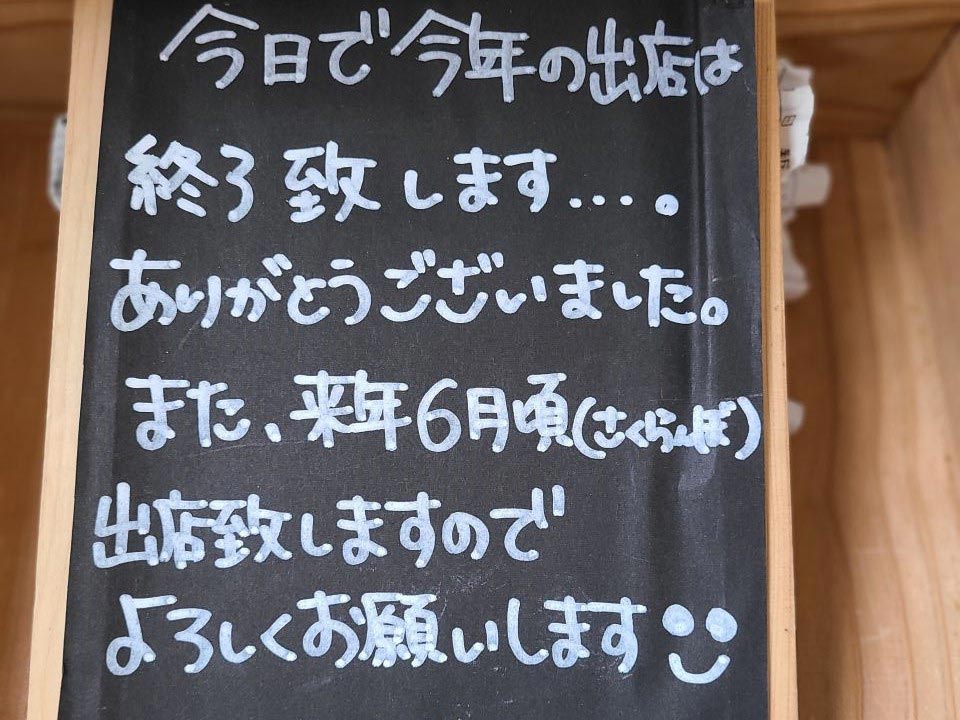 今日で今年の出店は
終了致します....。
ありがとうございました。
また、来年6月頃(さくらんぼ)
出店致しますので
よろしくお願いします